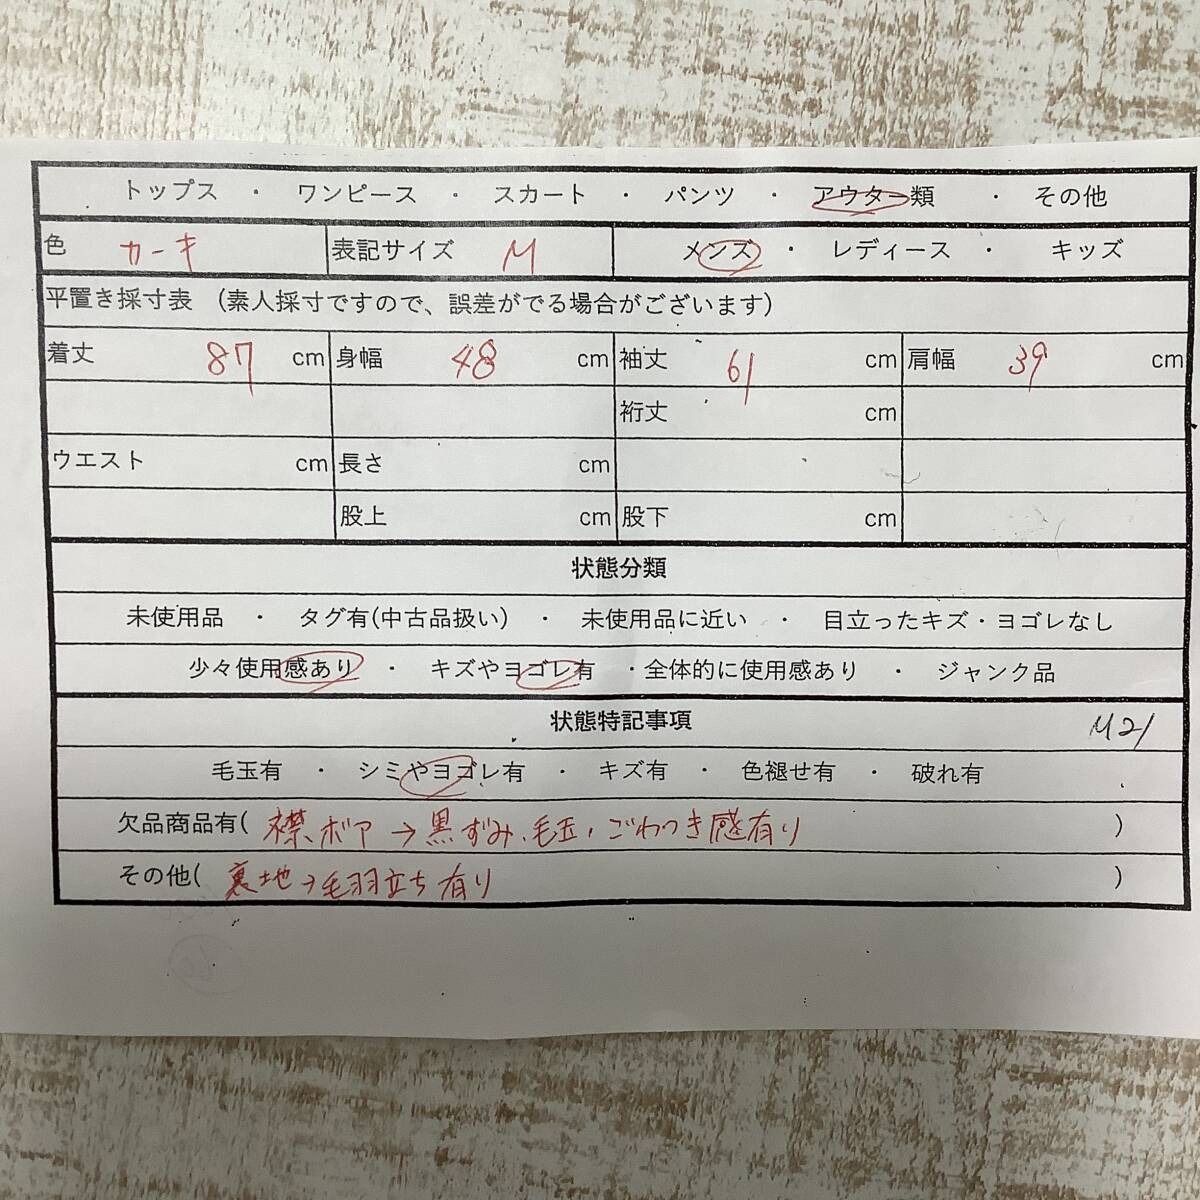 トップス ・ ワンピース ・ スカート ・ パンツ ・ アウター類 ・ その他
色 カーキ 表記サイズ M メンズ ・ レディース ・ キッズ
平置き採寸表 (素人採寸ですので、誤差がでる場合がございます)
着丈 87 cm 身幅 48 cm 袖丈 61 cm 肩幅 39 cm
裄丈 cm
ウエスト cm 長さ cm
股上 cm 股下 cm
状態分類
未使用品 ・ タグ有(中古品扱い) ・ 未使用品に近い ・ 目立ったキズ・ヨゴレなし
少々使用感あり ・ キズやヨゴレ有 ・全体的に使用感あり ・ ジャンク品
状態特記事項 M21
毛玉有 ・ シミやヨゴレ有 ・ キズ有 ・ 色褪せ有 ・ 破れ有
欠品商品有( 襟ボア→黒ずみ、毛玉、ごわつき感有り )
その他( 裏地→毛羽立ち有り )